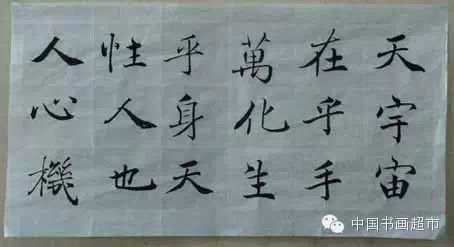 天宇宙
在乎手
萬化生
乎身天
性人也
人心機
中国书画超市